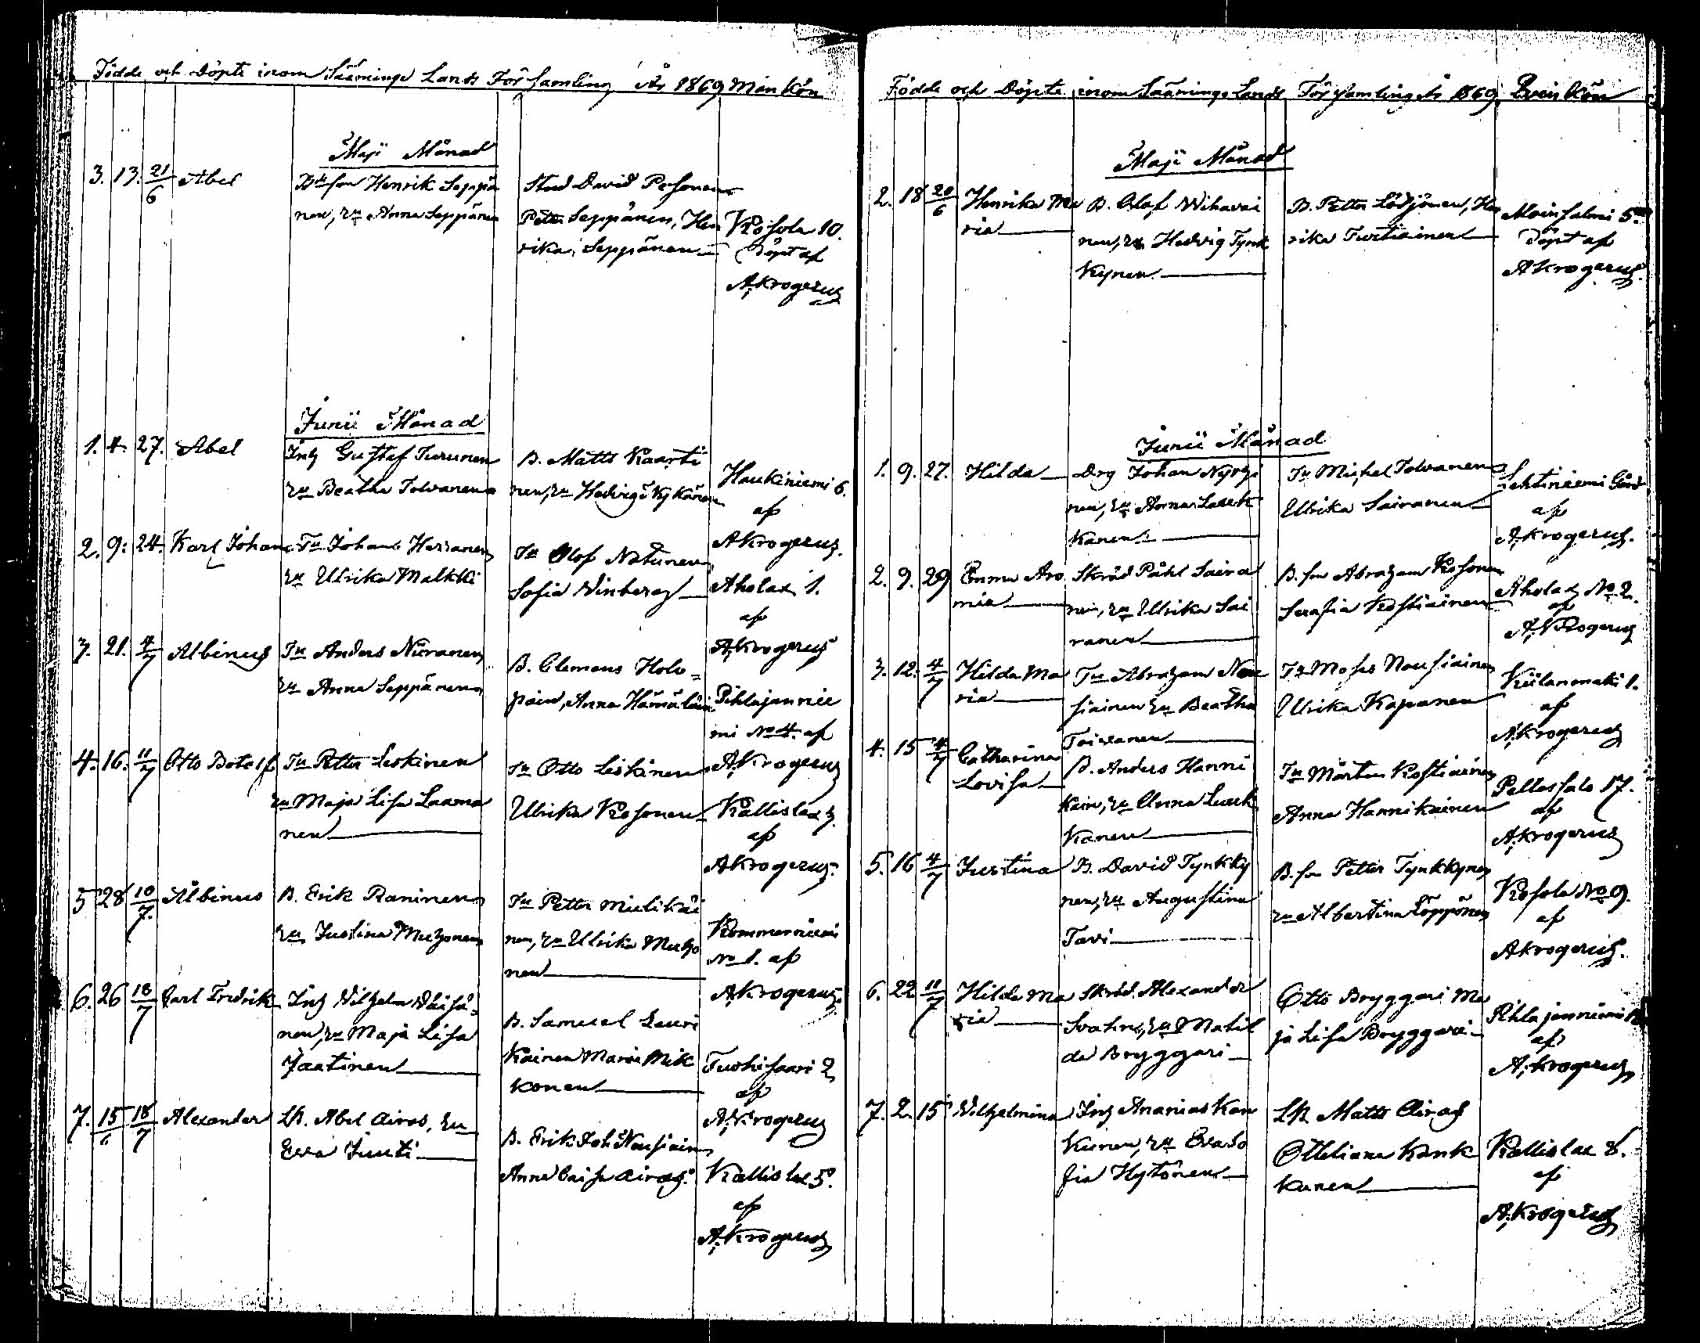 Födde och Döpte inom Sääminge Lands Församling År 1869 Mankön
Maji Månad
3. 13. 21/6 Abel
Henrik Seppä
nen, Anna Seppänen
David Pesonen
Petter Seppänen, Hen
rika Seppänen
Kosola 10.
Döpt af
A, Krogerus
Junii Månad
1. 4. 27. Abel
Inh Gustaf Turunen
Beatha Tolvanen
B. Matts Kaarti
nen, Hedvig Kykänen
Haukiniemi 6.
af
A Krogerus.
2. 9. 24. Karl Johan
Johan
Ulrika Malkki
Olof Natunen
Sofia Winberg
Aholax 1.
af
A, Krogerus
3. 21. 4/7 Albinus
Anders
Anna Seppänen
B. Clemens Holo-
painen, Anna Hämäläinen
Pihlajanie
mi No 4. af
A, Krogerus
4. 16. 11/7 Otto
Petter Leskinen
Maja Lisa Laama
nen
Otto Leskinen
Ulrika Kosonen
Kallislax 3.
af
A Krogerus.
5 28 10/7 Albinus
B. Erik Raninen
Justina Muhonen
Petter Mielikäi
nen, Ulrika Muho
nen
Kommerniemi
No 1. af
A, Krogerus
6. 26 18/7 Carl Fredrik
Inh Wilhelm Väisä-
nen, Maja Lisa
Jaatinen
B. Samuel Lauri
kainen Maria Mik
konen
Tuohisaari 2
af
A, Krogerus
7. 15/6 18/7 Alexander
Abel Airas,
Eva Juuti
B. Erik Joh Nousiainen
Anna Caisa Airas.
Kallislax 5.
af
A, Krogerus
Födde och Döpte inom Sääminge Lands Församling År 1869 Qvinkön
Maji Månad
2. 18 20/6 Henrika Ma
ria
B. Olof Wihavai
nen, Hedvig Tynk
kynen
B. Petter Lödjönen, Hen
rika Turtiainen
Moinsalmi 5.
Döpt af
A Krogerus.
Junii Månad
1. 9. 27. Hilda
Drg Johan
nen, Anna Lauk
kanen
Michel Tolvanen
Ulrika Sairanen
Lehtiniemi Gård
af
A, Krogerus.
2. 9. 29 Emma Aro
mia
Skräd Påhl Saira
nen, Ulrika Sai
ranen
B. son Abraham Kosonen
Serafia Kostiainen
Aholax No 2.
af
A, Krogerus
3. 12. 4/7 Hilda Ma
ria
Abraham Nou
siainen Beatha
Toivanen
Moses Nousiainen
Ulrika Kapanen
Kiilanmäki 1.
af
A, Krogerus
4. 15 4/7 Catharina
Lovisa
B. Anders Hanni
kain, Anna Lauk
kanen
Mårten Kostiainen
Anna Hannikainen
Pellossalo 17.
af
A, Krogerus
5. 16 4/7 Justina
B. David Tynkky
nen, Augustina
Tavi
B. son Petter Tynkkynen
Albertina Löppönen
Kosola No 9.
af
A Krogerus.
6. 22 11/7 Hilda Ma
ria
Skräd. Alexander
Svahn, Matil
da Bryggari
Otto Bryggari Ma
ja Lisa Bryggari
Pihlajaniemi
af
A, Krogerus
7. 2. 15 Wilhelmina
Inh Ananias Kan
kunen, Eva So
fia Hytönen
Matts Airas
Otteliana Kank
kunen
Kallislax 8.
af
A, Krogerus